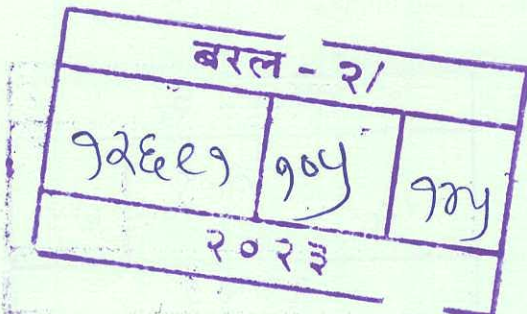 बरल - २/
१२६९१ १०५ १२५
२०२३